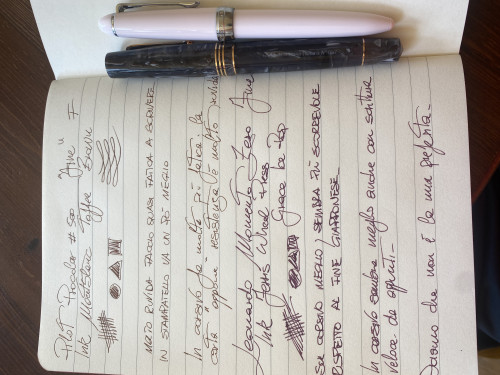 Pilot Procolor # 50 "Fine" F
Ink Montblanc Toffee Brown
MOLTO RUVIDA FACCIO QUASI FATICA A SCRIVERE
IN STAMPATELLO VA UN PÒ MEGLIO
In corsivo fa molta più fatica, la
carta oppone resistenza è molto ruvida
Leonardo Momento Zero Fine
Ink
SUL CORSIVO MEGLIO, SEMBRA PIÙ SCORREVOLE
RISPETTO AL FINE GIAPPONESE
In corsivo sembra meglio anche con scrittura
veloce da appunti -
Diciamo che non è la mia preferita -